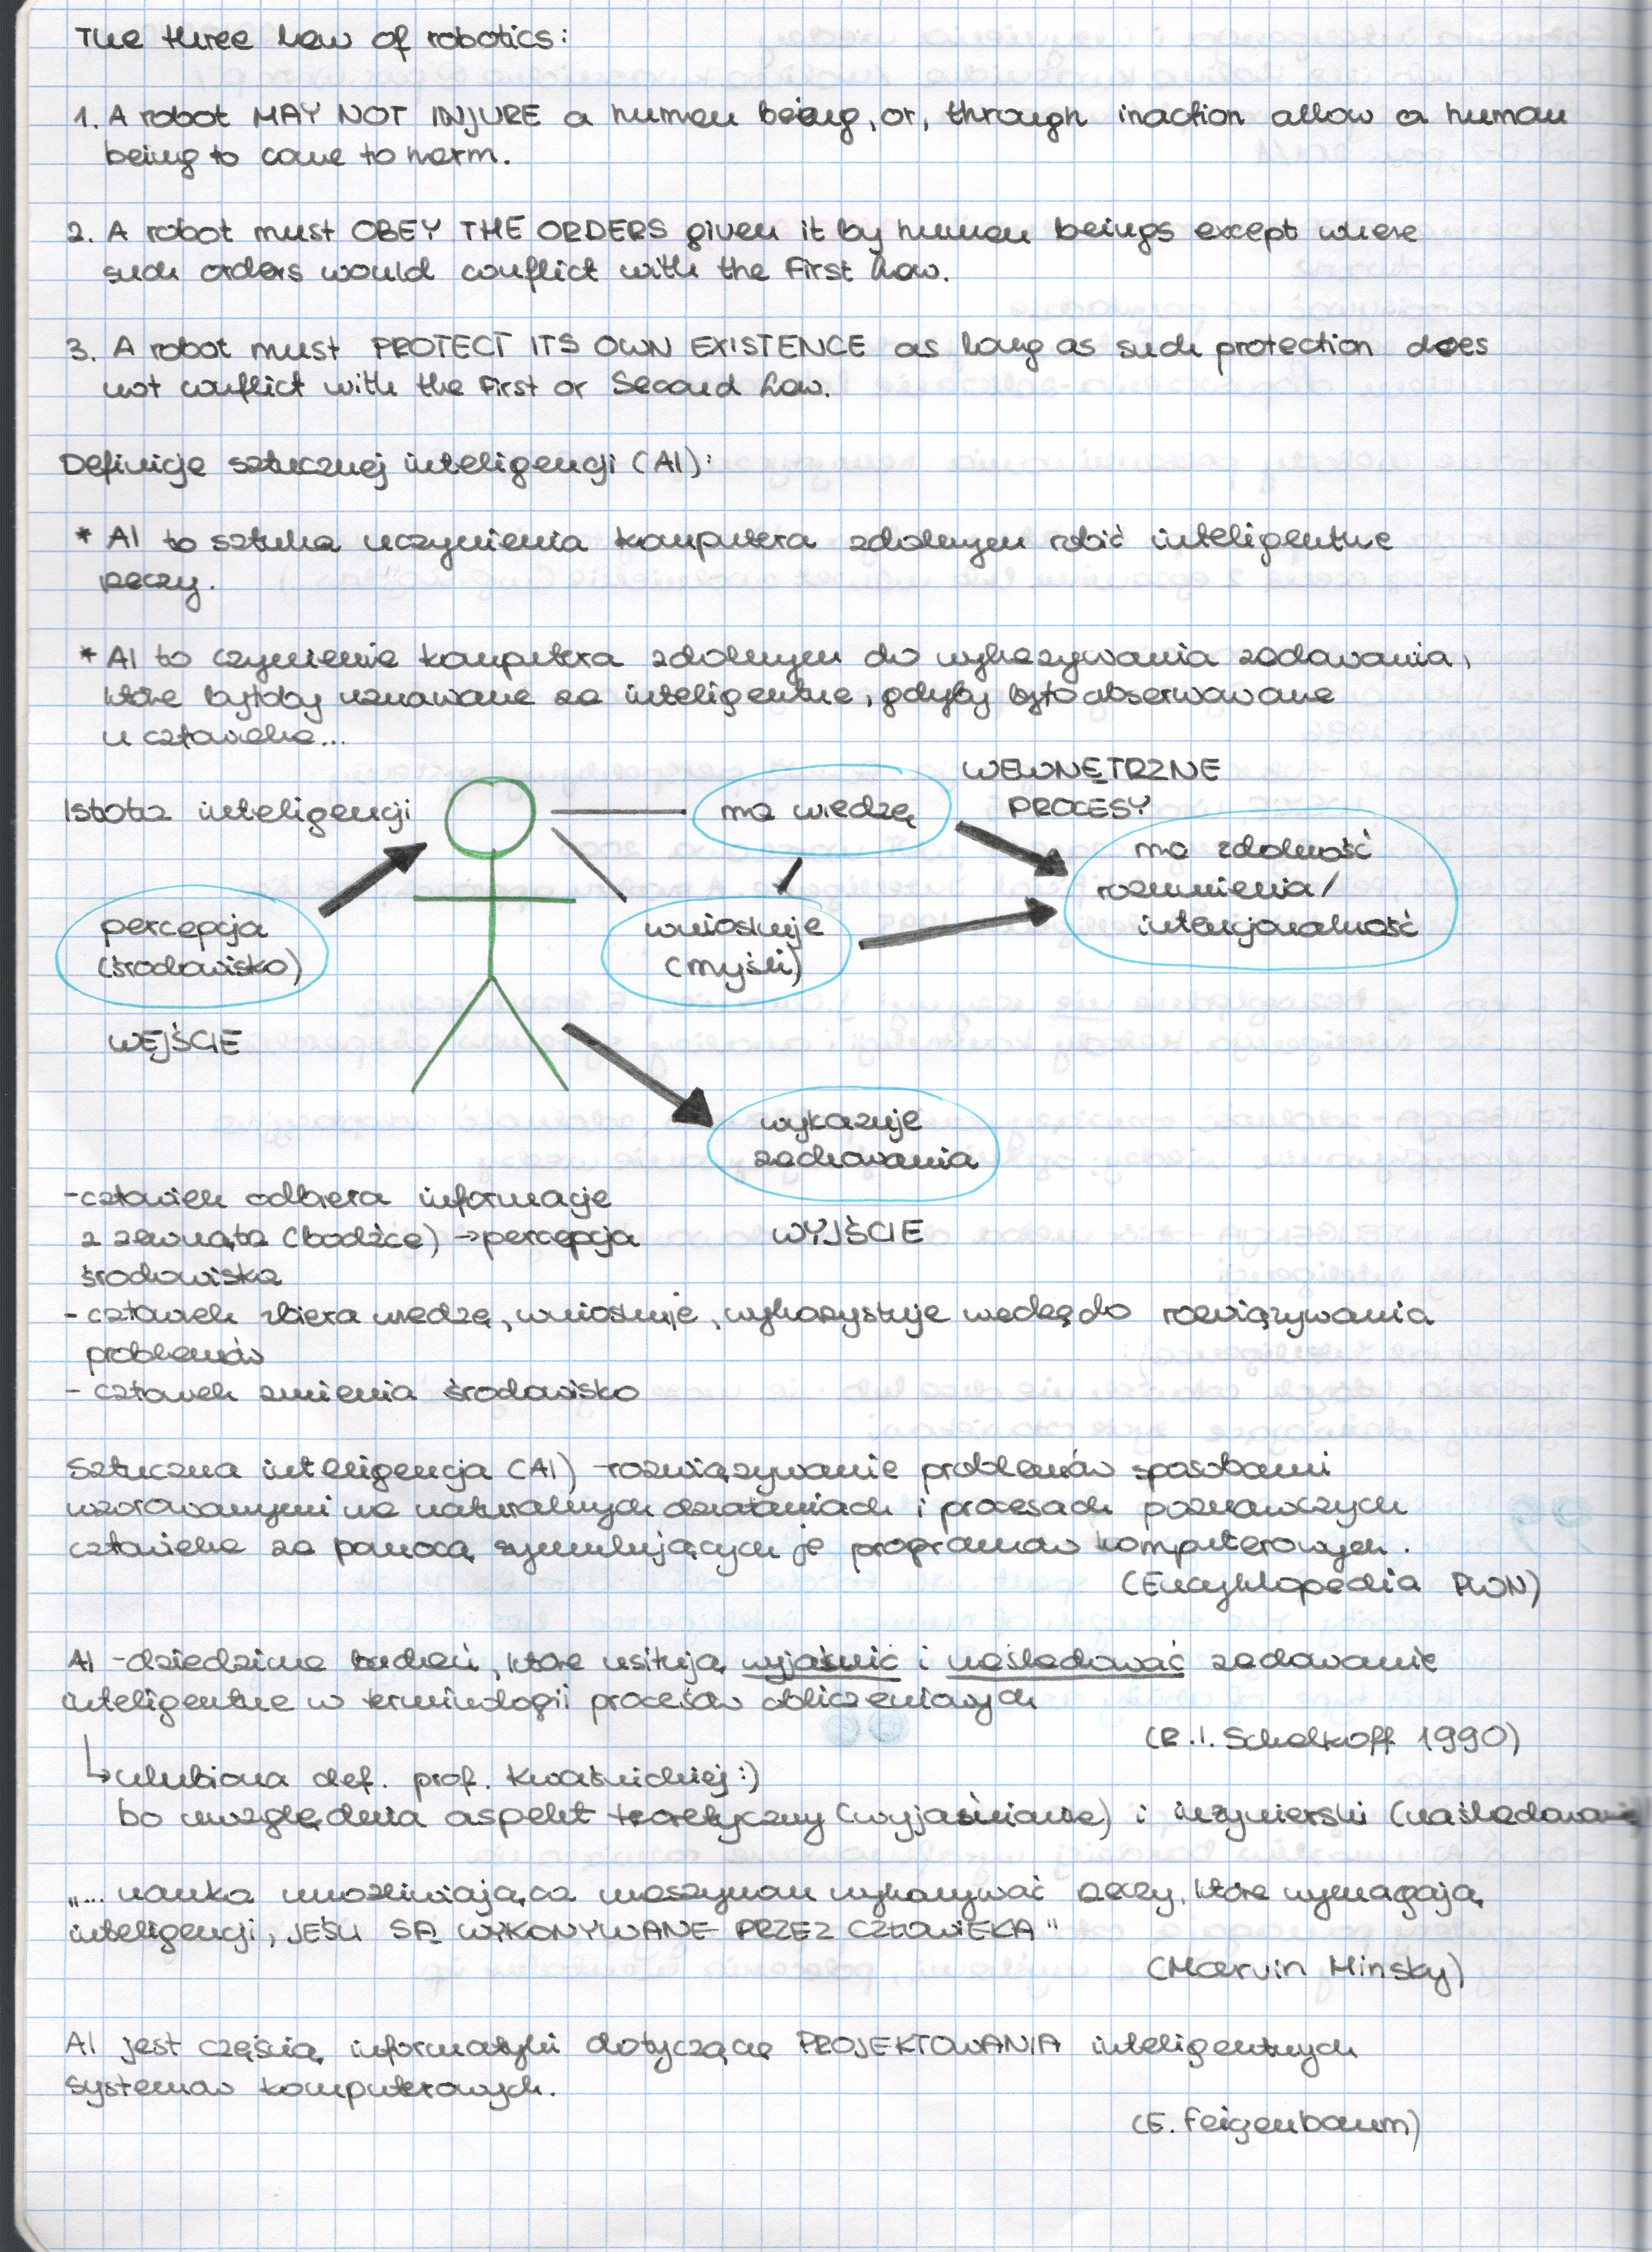 The three law of robotics:
1. A robot MAY NOT INJURE a human being, or, through inaction allow a human
being to come to harm.
2. A robot must OBEY THE ORDERS given it by human beings except where
such orders would conflict with the First Law.
3. A robot must PROTECT ITS OWN EXISTENCE as long as such protection does
not conflict with the First or Second Law.
Definicje sztucznej inteligencji (AI):
* AI to sztuka uczynienia komputera zdolnym robić inteligentne
rzeczy.
* AI to czynienie komputera zdolnym do wykazywania zachowania,
które byłoby uznawane za inteligentne, gdyby było obserwowane
u człowieka...
WEWNĘTRZNE
PROCESY
Istota inteligencji
ma wiedzę
ma zdolność
rozumienia/
intencjonalność
percepcja
(środowisko)
wnioskuje
(myśli)
WEJŚCIE
wykazuje
zachowania
WYJŚCIE
-człowiek odbiera informacje
z zewnątrz (bodźce) →percepcja
środowiska
- człowiek zbiera wiedzę, wnioskuje, wykorzystuje wiedzę do rozwiązywania
problemów
- człowiek zmienia środowisko
Sztuczna inteligencja (AI) -rozwiązywanie problemów sposobami
wzorowanymi na naturalnych działaniach i procesach poznawczych
człowieka za pomocą symulujących je programów komputerowych.
(Encyklopedia PWN)
AI -dziedzina badań, które usiłują wyjaśnić i naśladować zachowanie
inteligentne w terminologii procesów obliczeniowych
(R.I. Schalkoff 1990)
↳ulubiona def. prof. Kwaśnickiej :)
bo uwzględnia aspekt teoretyczny (wyjaśnianie) i inżynierski (naśladowanie)
„... nauka umożliwiająca maszynom wykonywać rzeczy, które wymagają
inteligencji, JEŚLI SĄ WYKONYWANE PRZEZ CZŁOWIEKA"
(Marvin Minsky)
AI jest częścią informatyki dotyczącą PROJEKTOWANIA inteligentnych
systemów komputerowych.
(E. Feigenbaum)